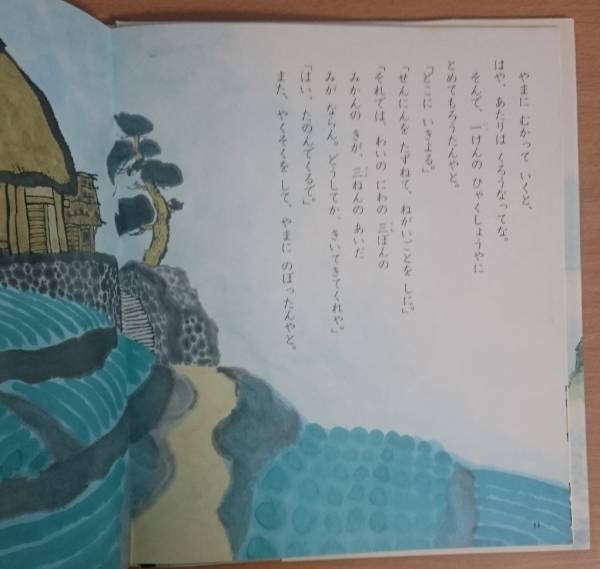 やまに むかって いくと、
はや、あたりは くろうなってな。
そんで、一けんの ひゃくしょうやに
とめてもろうたんやと。
「どこに いきよる。」
「せんにんを たずねて、ねがいごとを しに。」
「それでは、わいの にわの 三ぼんの
みかんの きが、三ねんの あいだ
みが ならん。どうしてか、きいてきてくれや。」
「はい、たのんでくるで。」
また、やくそくを して、やまに のぼったんやと。